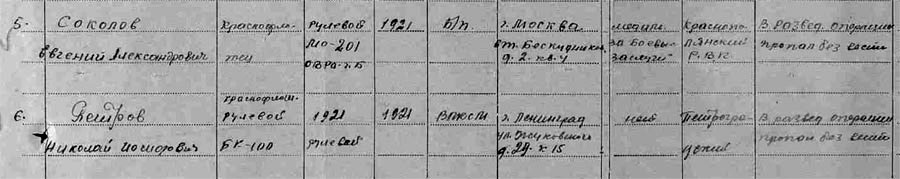 5. Соколов Краснофло- рулевой 1921 Б/п. г. Москва медаль Краснопо- В развед. операции
Евгений Александрович тец МО-201 ст. Бескудниково за Боевые лянский пропал без вести
ОВРа д. 2. кв. 4 заслуги Р.В.К.
6. Петров Краснофлот. 1921 1921 ВЛКСМ г. Ленинград нет Петрогра- В развед операции
Николай рулевой рулевой ул. д. 29. к 15 дский пропал без вести
БК-100